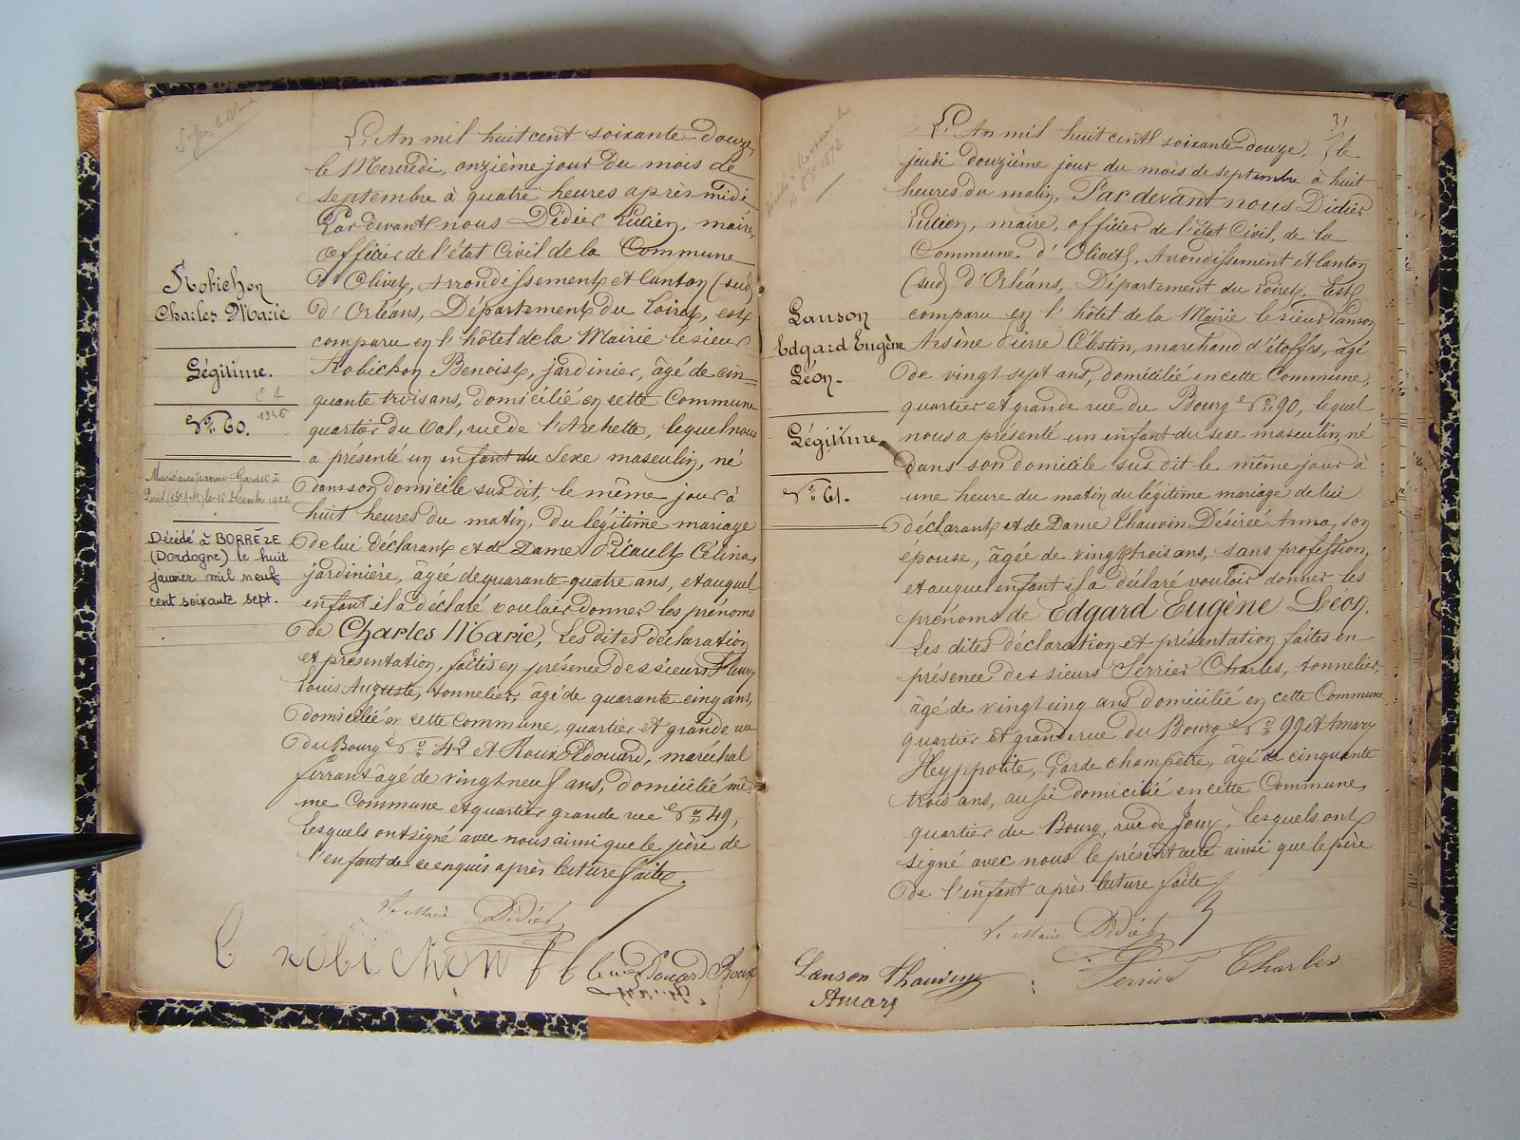 Robichon
Charles Marie
Légitime.
N° 60.
1946
Décédé à BORRÈZE
(Dordogne) le huit
janvier mil neuf
cent soixante sept.
L'An mil huit cent soixante-douze,
le Mercredi, onzième jour du mois de
septembre à quatre heures après midi
Par devant nous Didier Lucien, maire,
officier de l'état Civil de la Commune
d'Olivet, arrondissement et Canton (sud)
d'Orléans, Département du Loiret, est
comparu en l'hôtel de la Mairie le sieur
Robichon Benoist, jardinier, âgé de cin=
quante trois ans, domicilié en cette Commune
quartier du Val, rue de l'Archette, lequel nous
a présenté un enfant du Sexe masculin, né
dans son domicile sus dit, le même jour à
huit heures du matin, du légitime mariage
de lui déclarant et de Dame Célina,
jardinière, âgée de quarante-quatre ans, et auquel
enfant il a déclaré vouloir donner les prénoms
de Charles Marie, Les dites déclaration
et présentation, faites en présence des sieurs Fleury
Louis Auguste, tonnelier, âgé de quarante cinq ans,
domicilié en cette Commune, quartier et grande rue
du Bourg N° 42 et Roux Edouard, maréchal
ferrant âgé de vingt neuf ans, domicilié mê-
me Commune et quartier grande rue N° 49,
lesquels ont signé avec nous ainsi que le père de
l'enfant de ce enquis après lecture faite.
Le Maire Didier
Robichon Edouard Roux
31
L'An mil huit cent soixante-douze, le
jeudi douzième jour du mois de septembre à huit
heures du matin, Par devant nous Didier
Lucien, maire, officier de l'état Civil, de la
Commune d'Olivet, Arrondissement et Canton
(sud) d'Orléans, Département du Loiret, Est
comparu en l'hôtel de la Mairie le sieur Lanson
Arsène Pierre Célestin, marchand d'étoffes, âgé
de vingt-sept ans, domicilié en cette Commune,
quartier et grande rue du Bourg N° 90, lequel
nous a présenté un enfant du sexe masculin, né
dans son domicile sus dit le même jour à
une heure du matin, du légitime mariage de lui
déclarant et de Dame Chauvin Désirée Anna, son
épouse, âgée de vingt trois ans, sans profession,
et auquel enfant il a déclaré vouloir donner les
prénoms de Edgard Eugène Léon.
Les dites déclaration et présentation faites en
présence des sieurs Perrier Charles, tonnelier,
âgé de vingt cinq ans domicilié en cette Commune
quartier et grande rue du Bourg N° 99 et Amary
Heyppolite, Garde champêtre, âgé de cinquante
trois ans, aussi domicilié en cette Commune,
quartier du Bourg, rue de Jouy, lesquels ont
signé avec nous le présent acte ainsi que le père
de l'enfant après lecture faite
Lanson
Edgard Eugène
Léon.
Légitime
N° 61.
Le Maire Didier
Lanson Perrier Charles
Amary